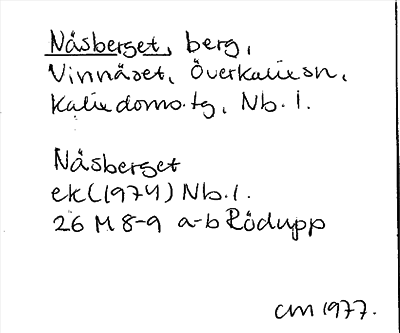 Näsberget, berg,
Vinnäset, Överkalix sn,
Kalix doms.tg, Nb. l.
Näsberget
ek (1974) Nb. l.
26 M 8-9 a-b Rödupp
CM 1977.